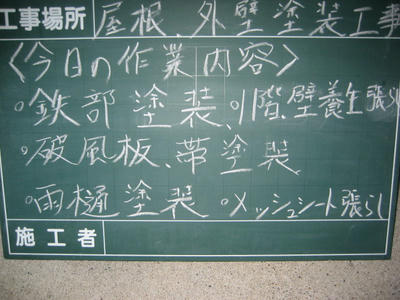 工事場所 屋根、外壁塗装工事
〈今日の作業内容〉
・鉄部塗装、1階、壁養生張り
・破風板、帯塗装
・雨樋塗装 ・メッシュシート張らし
施工者